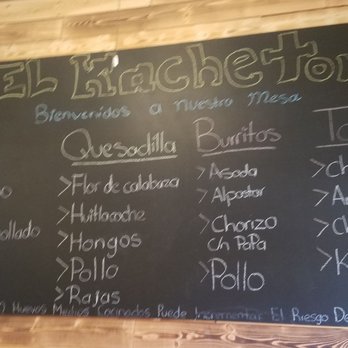 EL Kacheton
Bienvenidos a nuestro Mesa
Quesadilla
>Flor de calabaza
>Huitlacoche
>Hongos
>Pollo
>Rajas
Burritos
>Asada
>Alpastor
>Chorizo
c/n PaPa
>Pollo
ollado
Huevos Medios Cocinados Puede Incrementar El Riesgo De